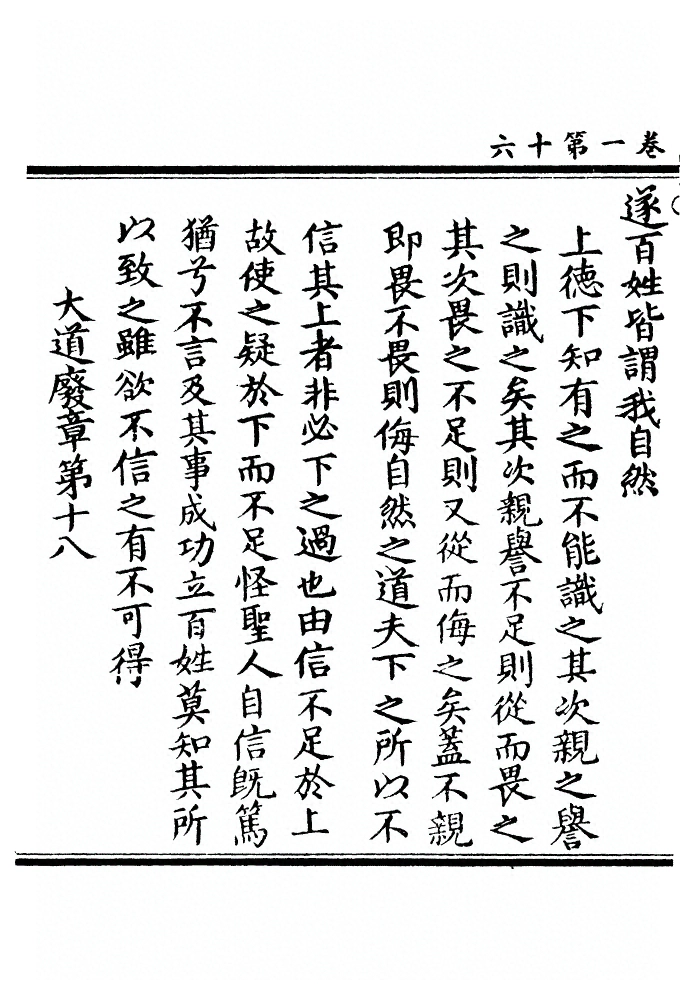 卷一第十六
遂百姓皆謂我自然
上德下知有之而不能識之其次親之譽
之則識之矣其次親譽不足則從而畏之
其次畏之不足則又從而侮之矣蓋不親
即畏不畏則侮自然之道夫下之所以不
信其上者非必下之過也由信不足於上
故使之疑於下而不足怪聖人自信既篤
猶兮不言及其事成功立百姓莫知其所
以致之雖欲不信之有不可得
大道廢章第十八